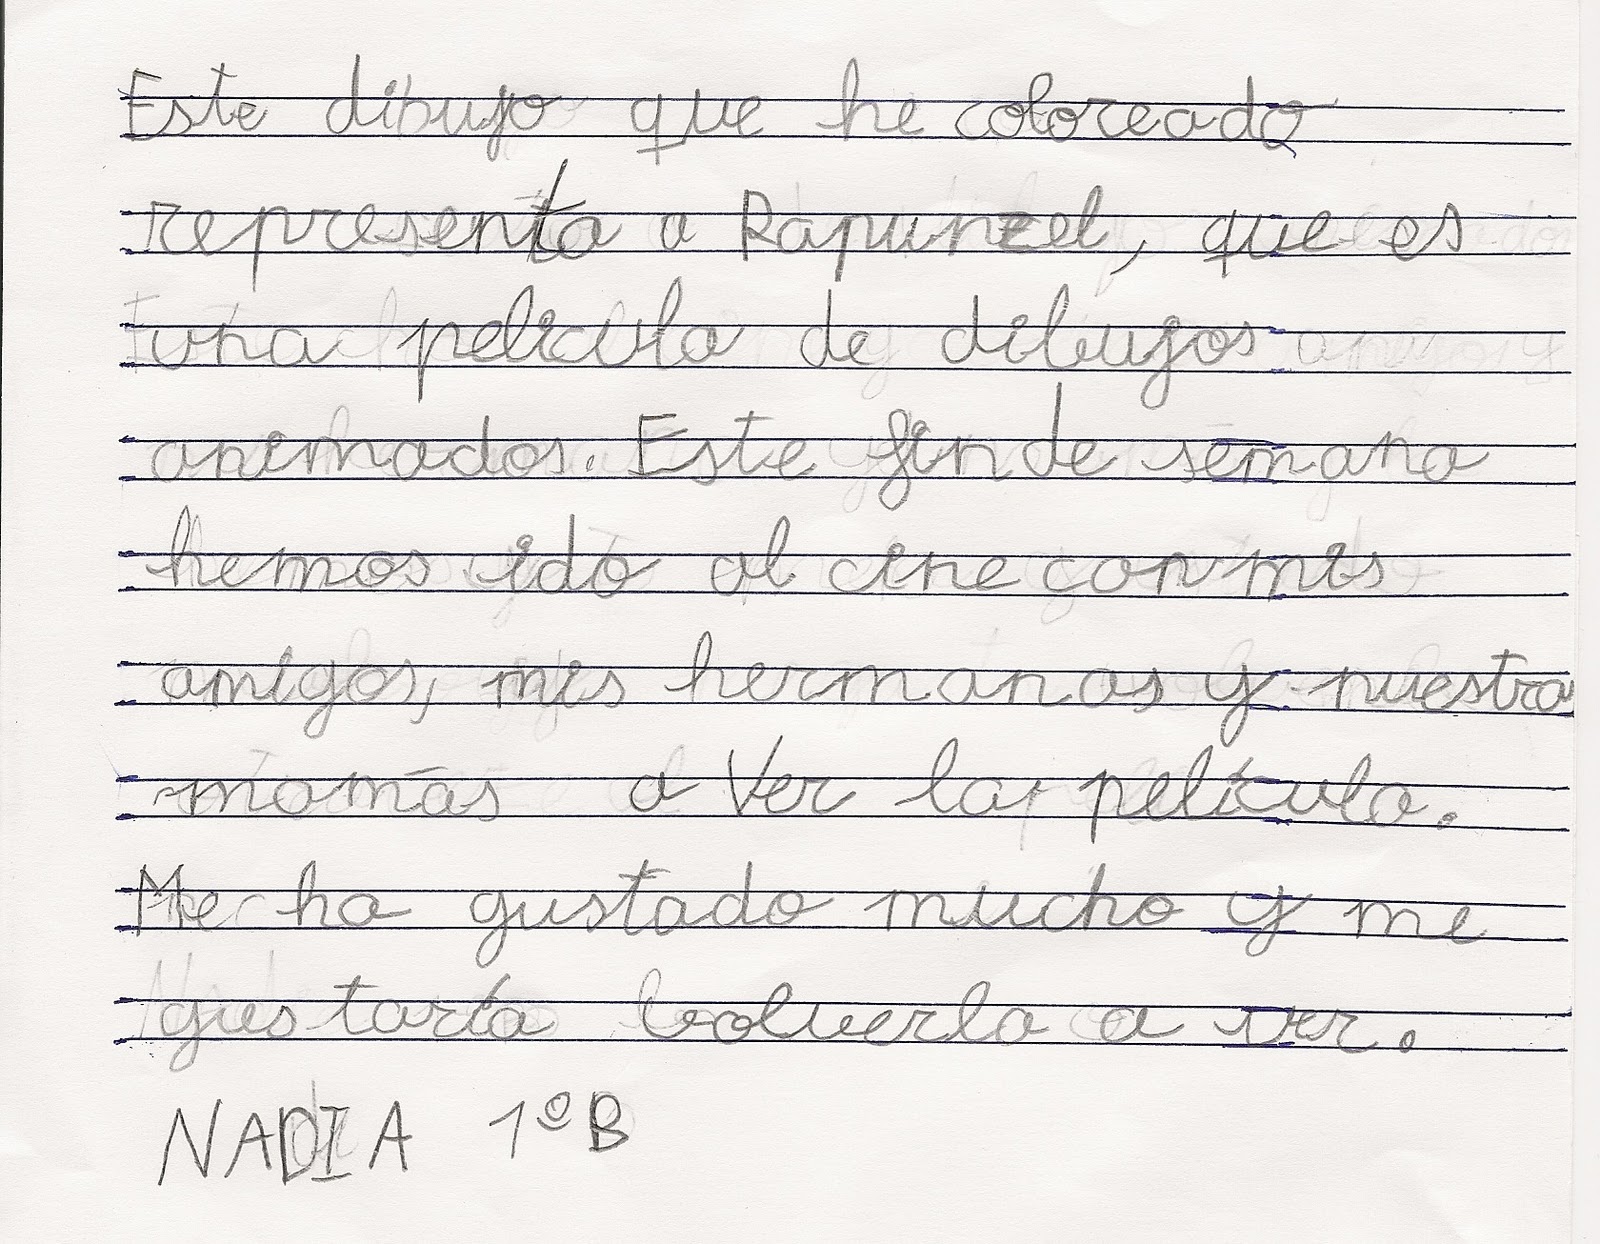 Este dibujo que he coloreado
representa a Rapunzel, que es
una película de dibujos
animados. Este fin de semana
hemos ido al cine con mis
amigos, mis hermanas y nuestra
mamás a ver la película.
Me ha gustado mucho y me
gustaría bolverla a ver.
NADIA 1ºB